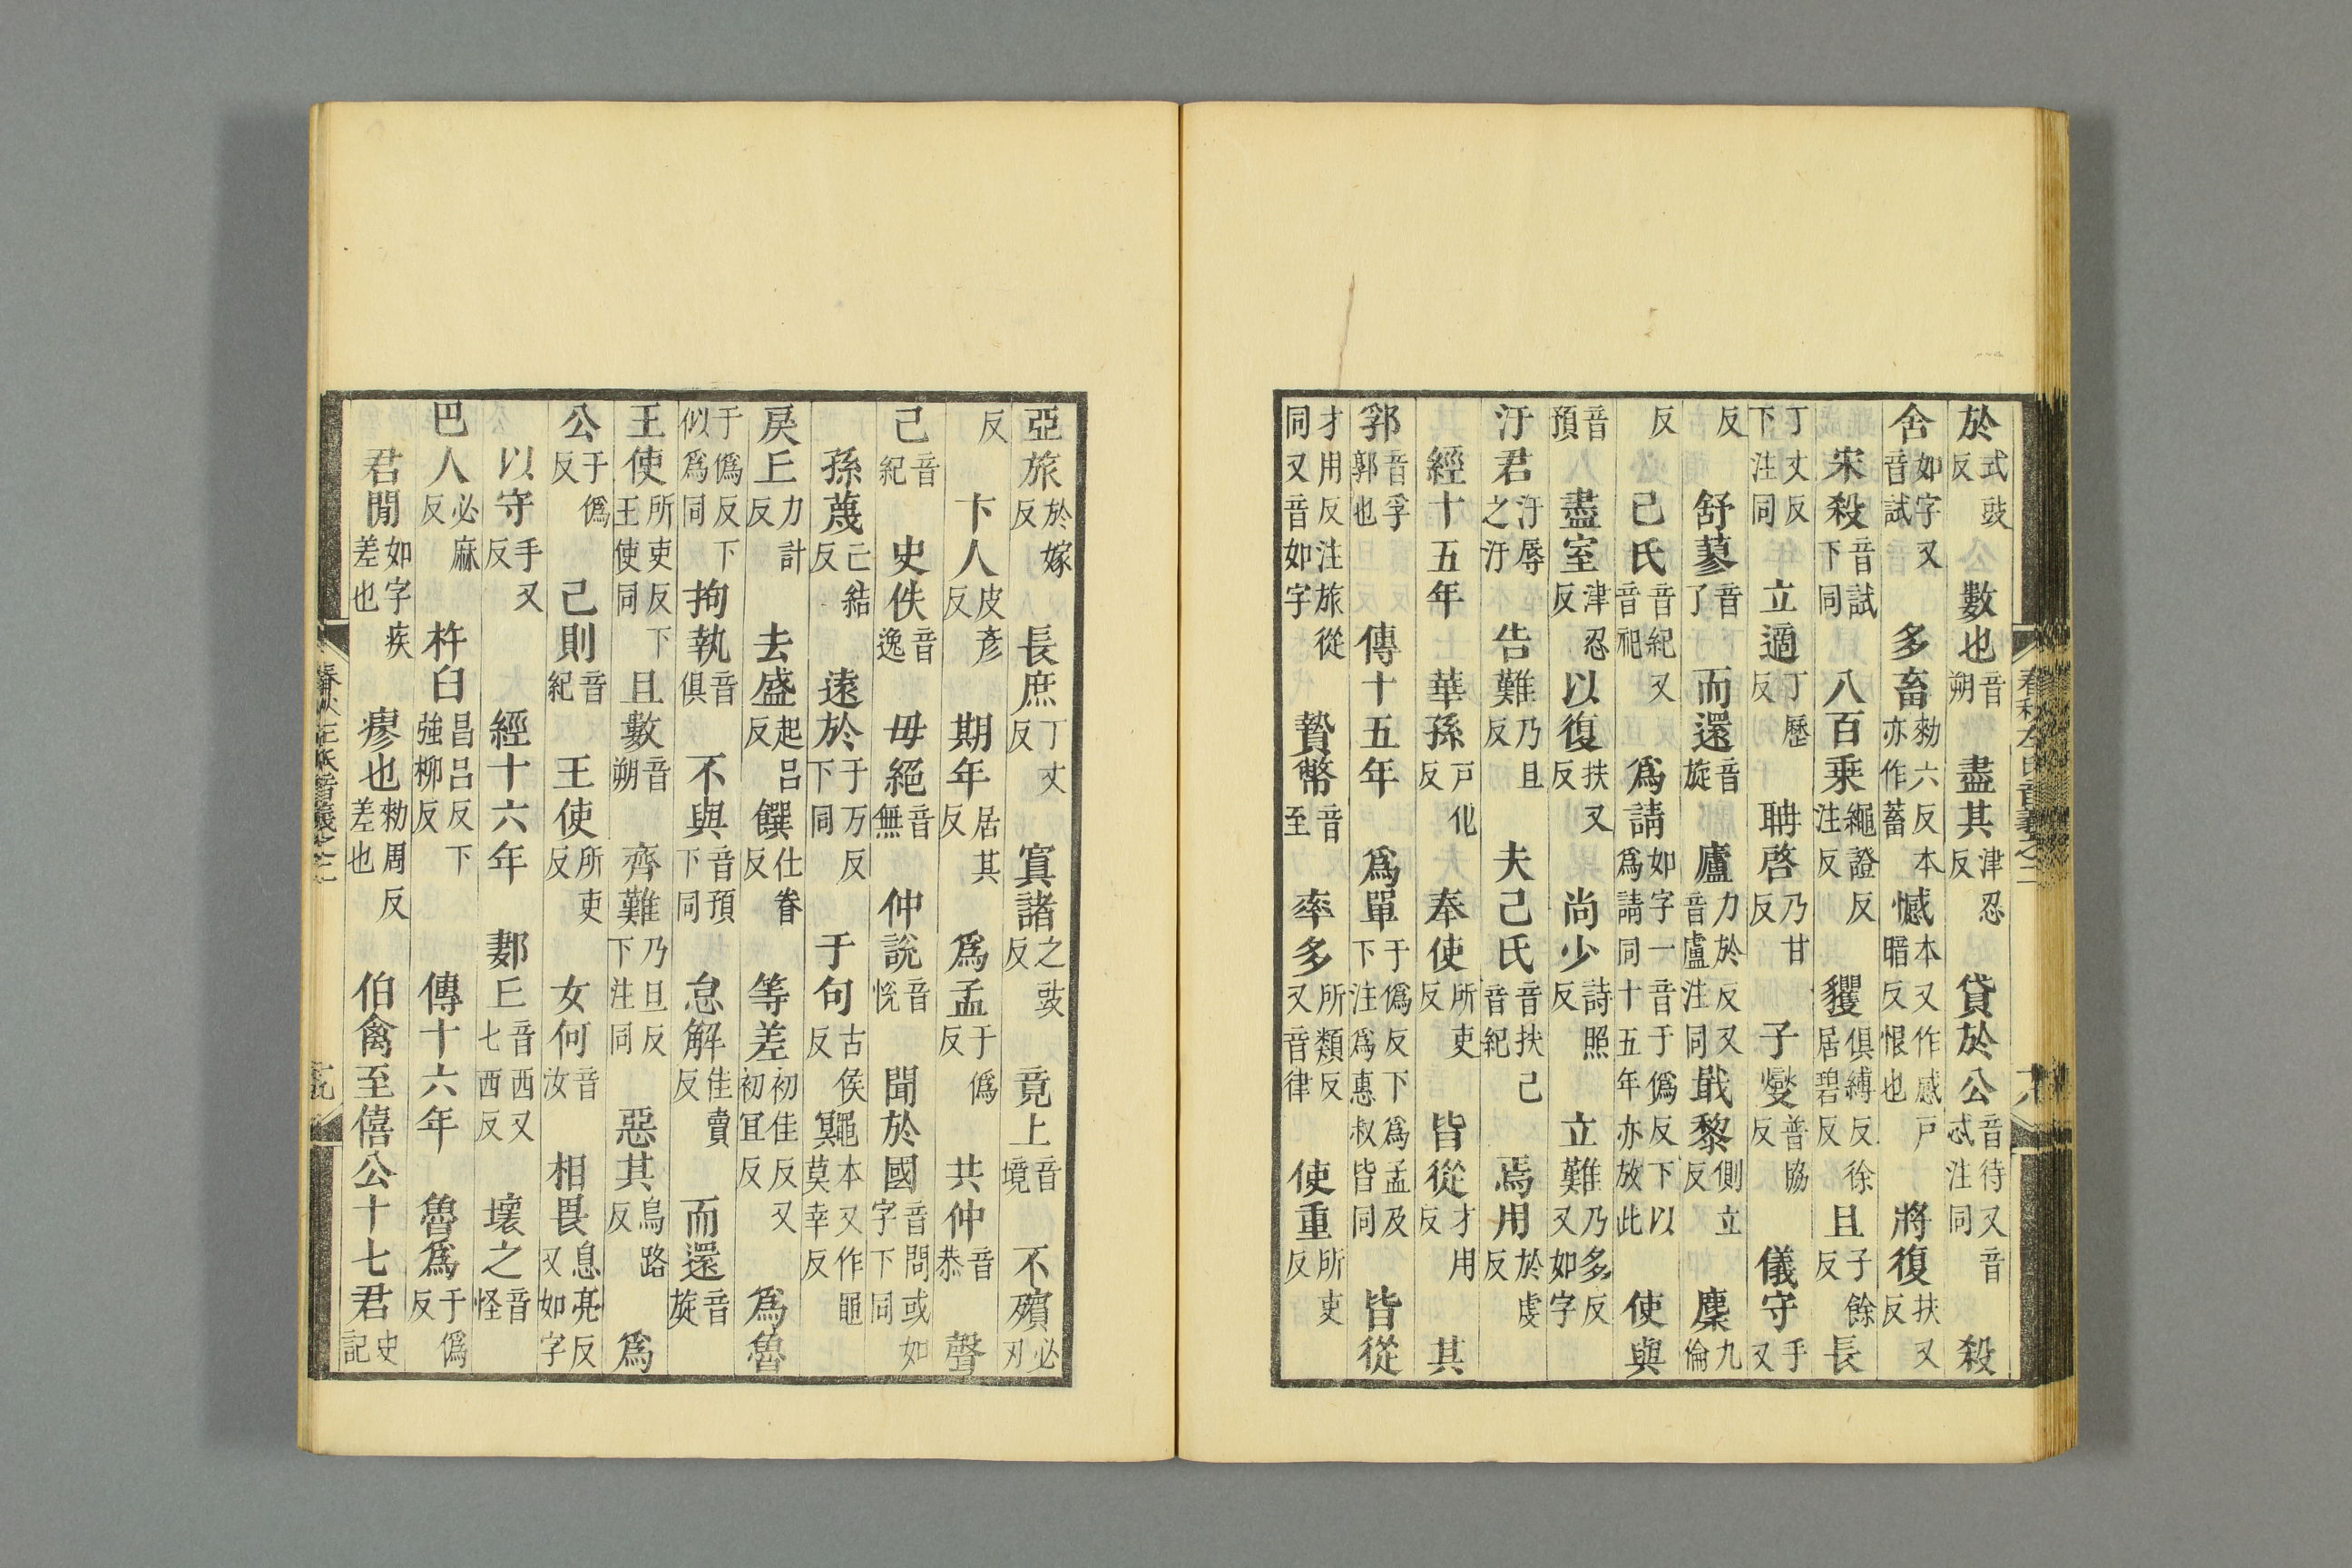 於式豉反 數也音朔 盡其津忍反 貸於公音待又音忒注同 殺
舍如字又音試 多畜勑六反本亦作蓄 憾本又作感戶暗反恨也 將復扶又反
宋殺音試下同 八百乘繩證反注反 玃俱縛反徐居碧反 且子餘反 長
丁丈反下注同 立適丁歷反 聃啓乃甘反 子燮普協反 儀守手又
反 舒蓼音了 而還音旋 廬力於反又音盧注同 戢黎側立反 麇九倫
反 己氏音紀又音祀 爲請如字一音于僞反下以爲請同十五年亦放此 使與
音預 盡室津忍反 以復扶又反 尚少詩照反 立難乃多反又如字
汙君汙辱之汙 告難乃旦反 夫己氏音扶己音紀 焉用於虔反
經十五年 華孫戶化反 奉使所吏反 皆從才用反 其
郛音孚郭也 傳十五年 爲單于僞反下爲孟及下注爲惠叔皆同 皆從
才用反注旅從同又音如字 贄幣音至 率多所類反又音律 使重所吏反
春秋左氏音義之二
亞旅於嫁反 長庶丁丈反 寘諸之豉反 竟上音境 不殯必刃
反 卞人皮彥反 期年居其反 爲孟于僞反 共仲音恭 聲
己音紀 史佚音逸 毋絕音無 仲說音悅 聞於國音問或如字下同
孫蔑亡結反 遠於于万反下同 于句古侯反 鼆本又作黽莫幸反
戾丘力計反 去盛起呂反 饌仕眷反 等差初佳反又初宜反 爲魯
于僞反下似爲同 拘執音俱 不與音預下同 怠解佳賣反 而還音旋
王使所吏反下王使同 且數音朔 齊難乃旦反下注同 惡其烏路反 爲
公于僞反 己則音紀 王使所吏反 女何音汝 相畏息亮反又如字
以守手又反 經十六年 郪丘音西又七西反 壞之音怪
巴人必麻反 杵臼昌呂反下強柳反 傳十六年 魯爲于僞反
君閒如字疾差也 瘳也勑周反差也 伯禽至僖公十七君史記
春秋左氏音義之二